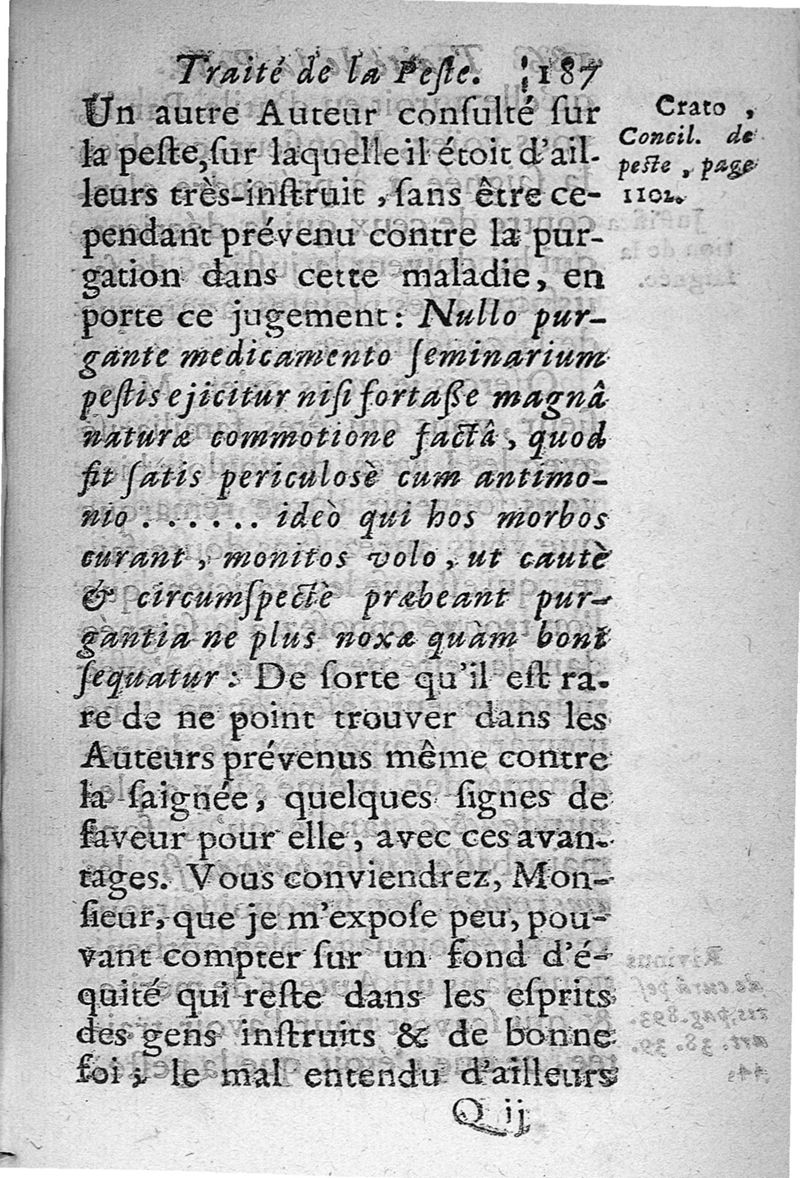 Traité de la Peſte. 187
Un autre Auteur conſulté ſur
la peſte, ſur laquelle il étoit d'ail-
leurs très-inſtruit, ſans être ce-
pendant prévenu contre la pur-
gation dans cette maladie, en
porte ce jugement: Nullo pur-
gante medicamento ſeminarium
peſtis ejicitur niſi fortaſſe magnâ
naturæ commotione factâ, quod
fit ſatis periculosè cum antimo-
nio ...... ideò qui hos morbos
curant, monitos volo, ut cautè
& circumſpectè præbeant pur-
gantia ne plus noxæ quàm boni
ſequatur: De ſorte qu'il eſt ra-
re de ne point trouver dans les
Auteurs prévenus même contre
la ſaignée, quelques ſignes de
faveur pour elle, avec ces avan-
tages. Vous conviendrez, Mon-
ſieur, que je m'expoſe peu, pou-
vant compter ſur un fond d'é-
quité qui reſte dans les eſprits
des gens inſtruits & de bonne
foi; le mal entendu d'ailleurs
Q ij
Crato,
Concil. de
peſte, page
1102.